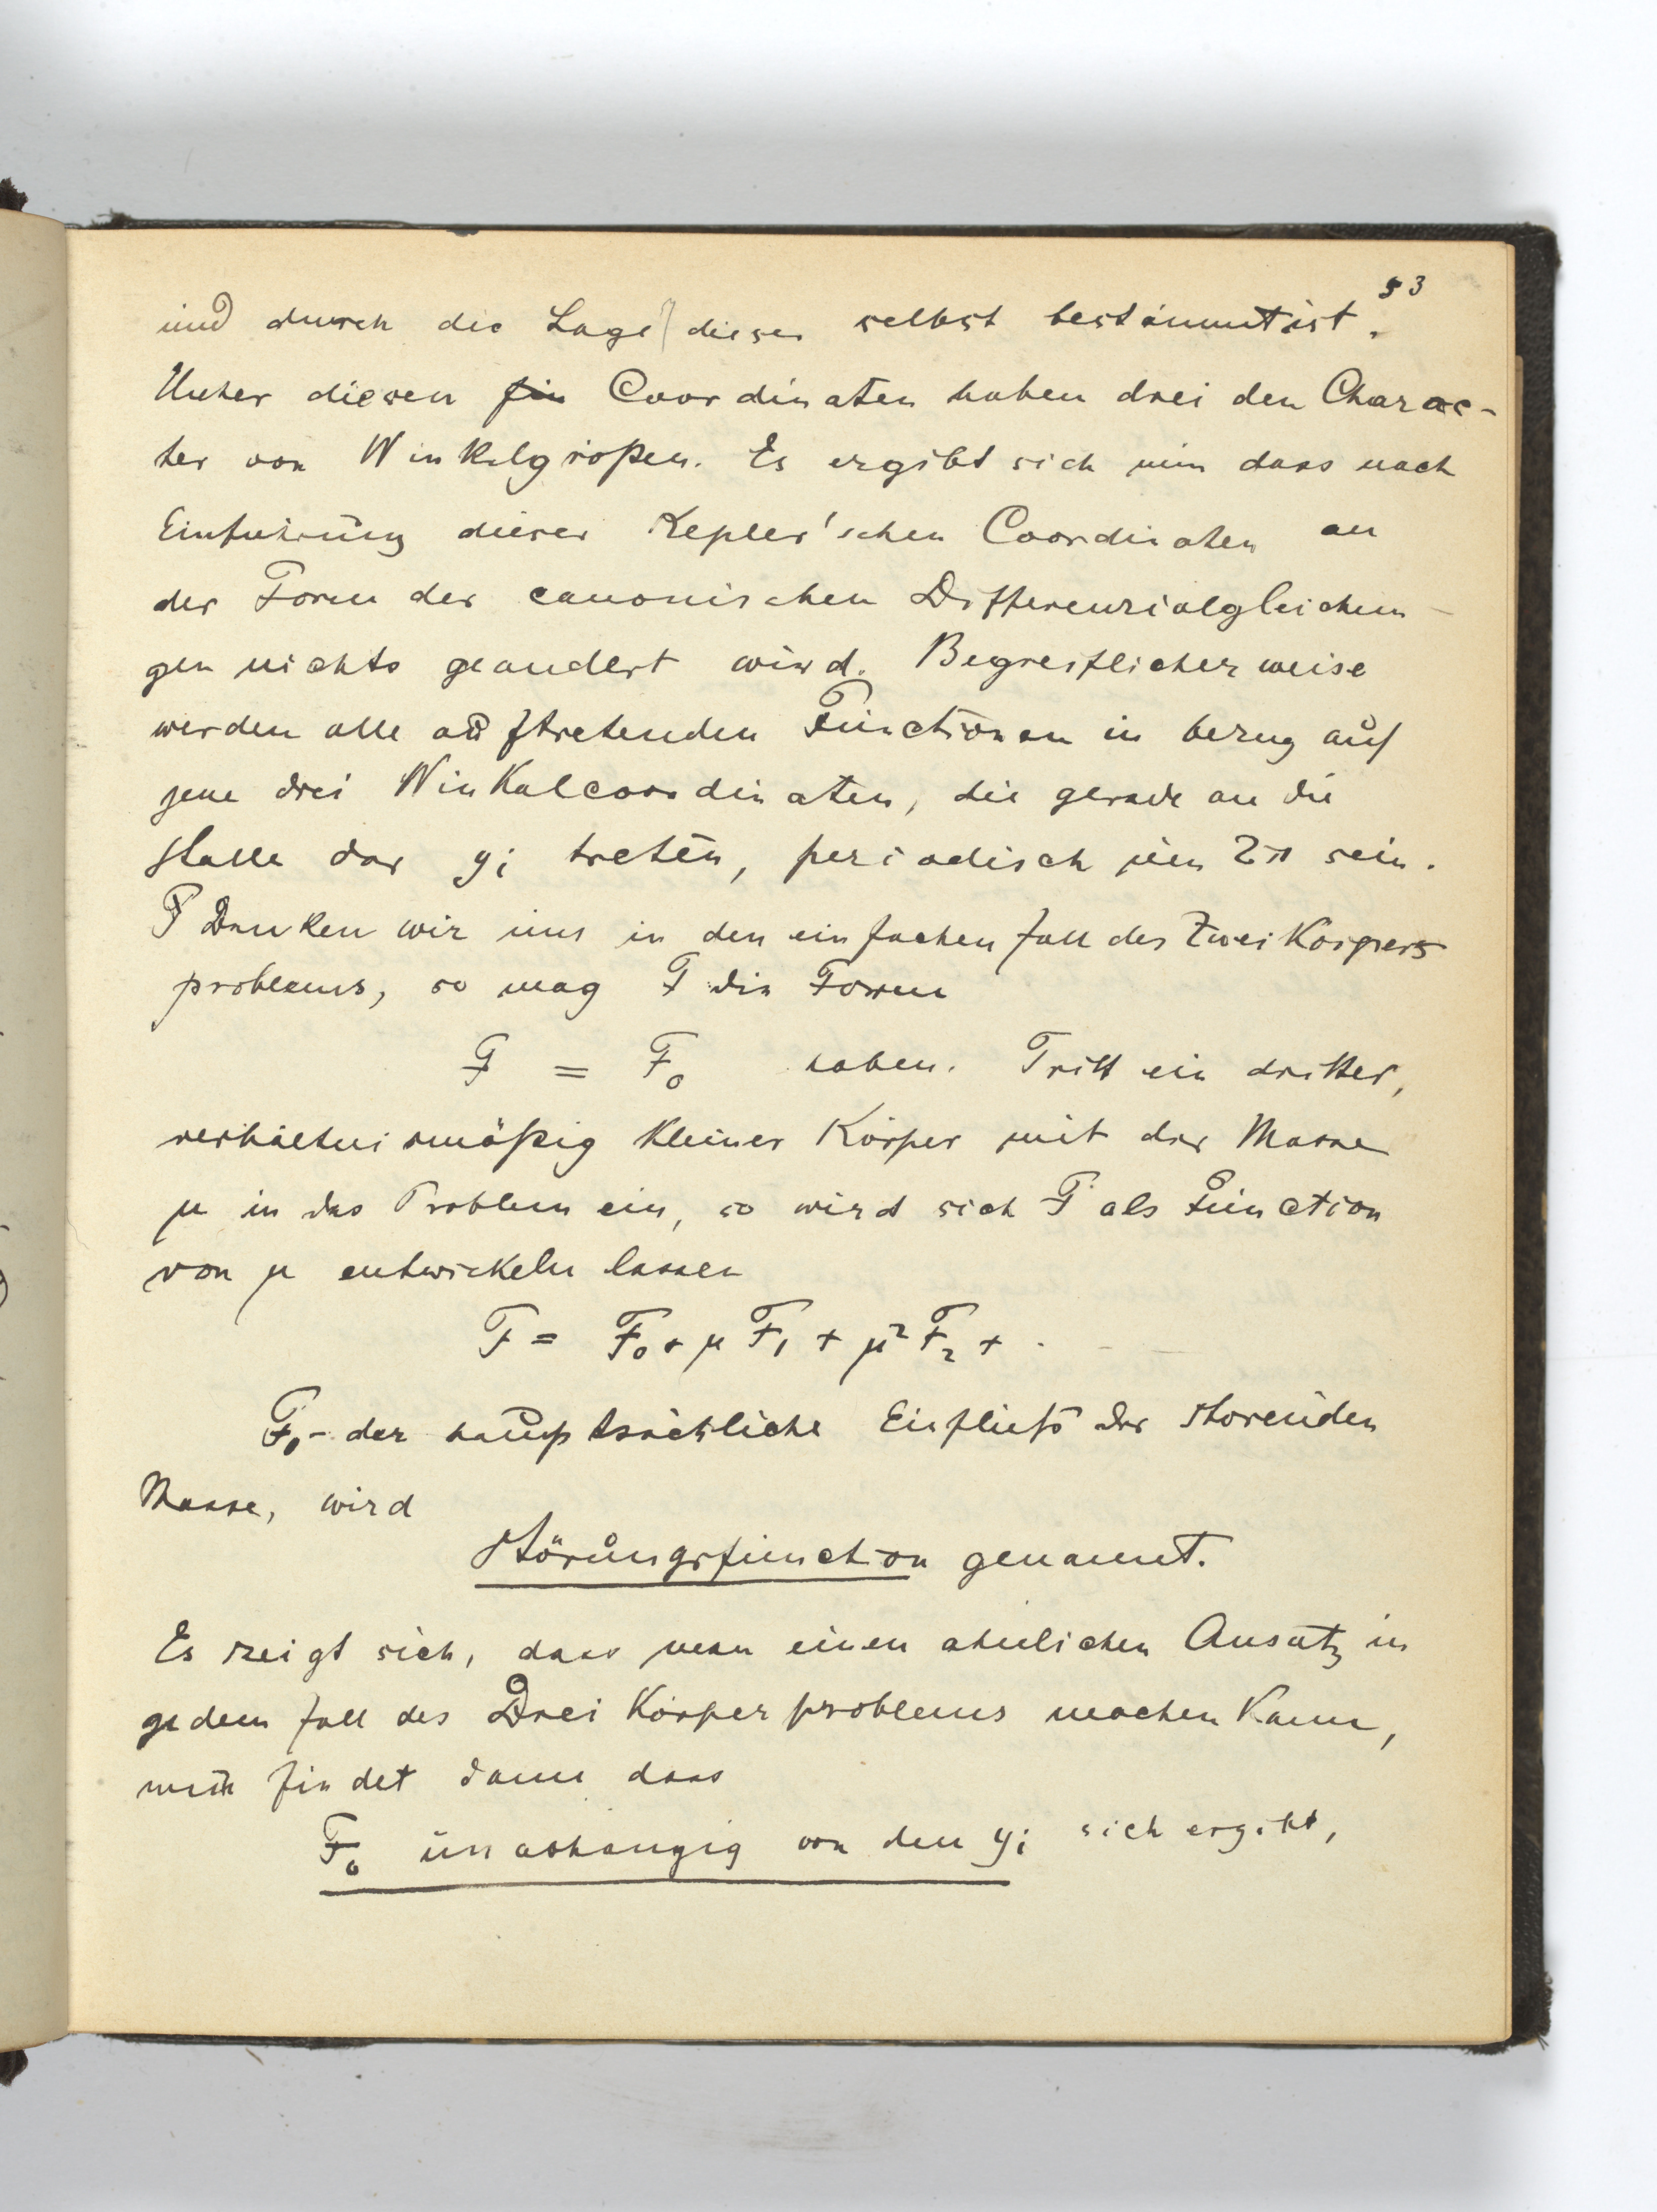 53
und durch die Lage dieser selbst bestimmt ist.
Unter diesen Coordinaten haben drei den Charac-
ter von Winkelgrößen. Es ergibt sich nun dass nach
Einfuhrung dieser Kepler'schen Coordinaten an
der Form der canonischen Differenzialgleichun-
gen nichts geandert wird. Begreiflicherweise
werden alle auftretenden Functionen in bezug auf
jene drei Winkelcoordinaten, die gerade an die
Stelle der yi treten, periodisch um 2π sein.
Denken wir uns in den einfachen Fall des Zwei Korpers
problems, so mag F die Form
F = F₀ haben. Tritt ein dritter,
verhältnismäßig kleiner Körper mit der Masse
μ in das Problem ein, so wird sich F als Function
von μ entwickeln lassen
F = F₀ + μ F₁ + μ² F₂ + . - -
F₁ - der hauptsächliche Einfluß der storenden
Masse, wird
Störungsfunction genannt.
Es zeigt sich, dass man einen ahnlichen Ansatz in
jedem Fall des Drei Körperproblems machen kann,
man findet dann dass
F₀ unabhangig von den yi sich ergibt,